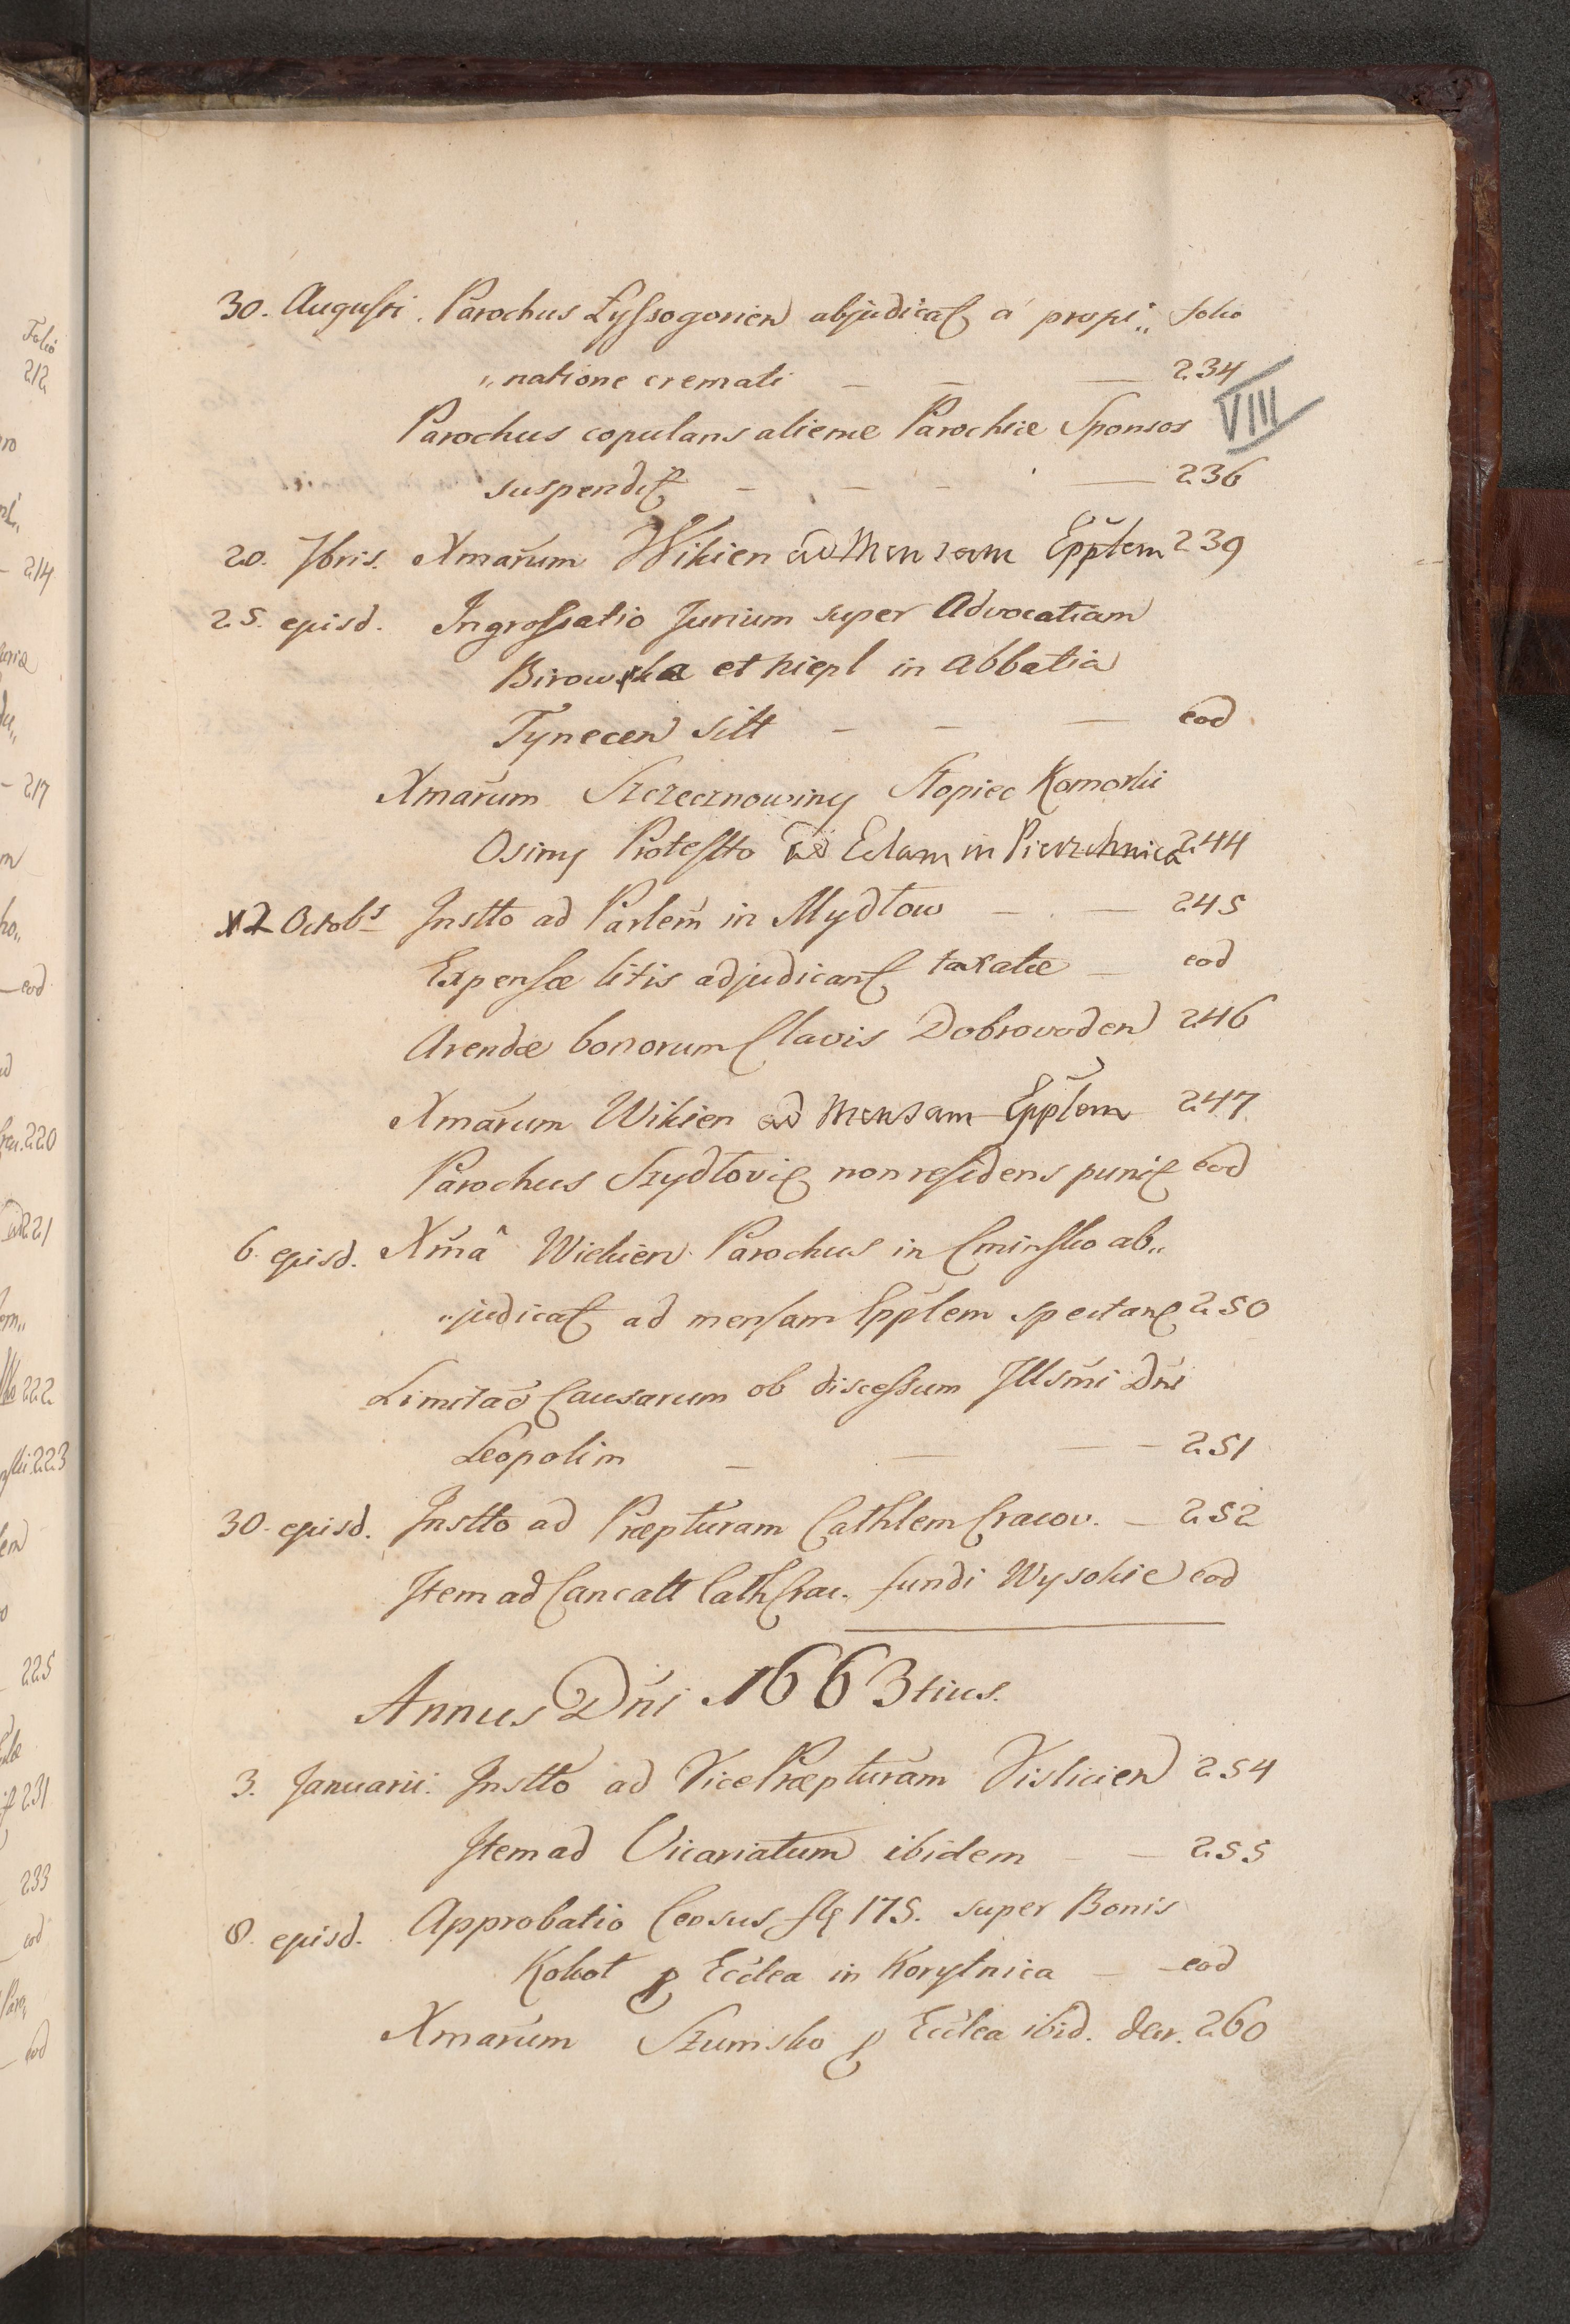 30. Augusti. Parochus Łyssogorien abjudicat a propi„ folio
„natione cremati — — — 234
VIII
Parochus copulans alienæ Parochiæ Sponsos
suspendit — — — 236
20. 7bris. Xmarum Wikien ad Mensam Epplem 239
25. ejusd. Ingrossatio Jurium super Advocatiam
Birowska et hiepl in Abbatia
Tynecen sitt — — — eod
Xmarum Szczecznowiny Stopiec Komorki
Osiny Protestto ad Eclam in Pierzchnica 244
2 Octobs Instto ad Parlem in Mydłow — — 245
Expensæ litis adjudicant taxatæ — eod
Arendæ bonorum Clavis Dobrovoden 246
Xmarum Wikien ad Mensam Epplem 247
Parochus Szydłovic non residens punit eod
6. ejusd. Xma Wickien Parochus in Cminsko ab„
„judicat ad mensam Epplem spectant 250
Limitao Causarum ob discessum Illsmi Dni
Leopolim — — — 251
30. ejusd. Instto ad Præpturam Cathlem Cracov. — 252
Item ad Cancatt Cath Crac. fundi Wysokie eod
Annus Dni 1663tius.
3. Januarii. Instto ad VicePræpturam Vislicien 254
Item ad Vicariatum ibidem — — 255
8. ejusd. Approbatio Census fl 175. super Bonis
Kokot p Ecclea in Korytnica — eod
Xmarum Szumsko p Ecclea ibid. der. 260
Folio
212
214
217
eod
220
221
222
223
225
231
233
eod
eod